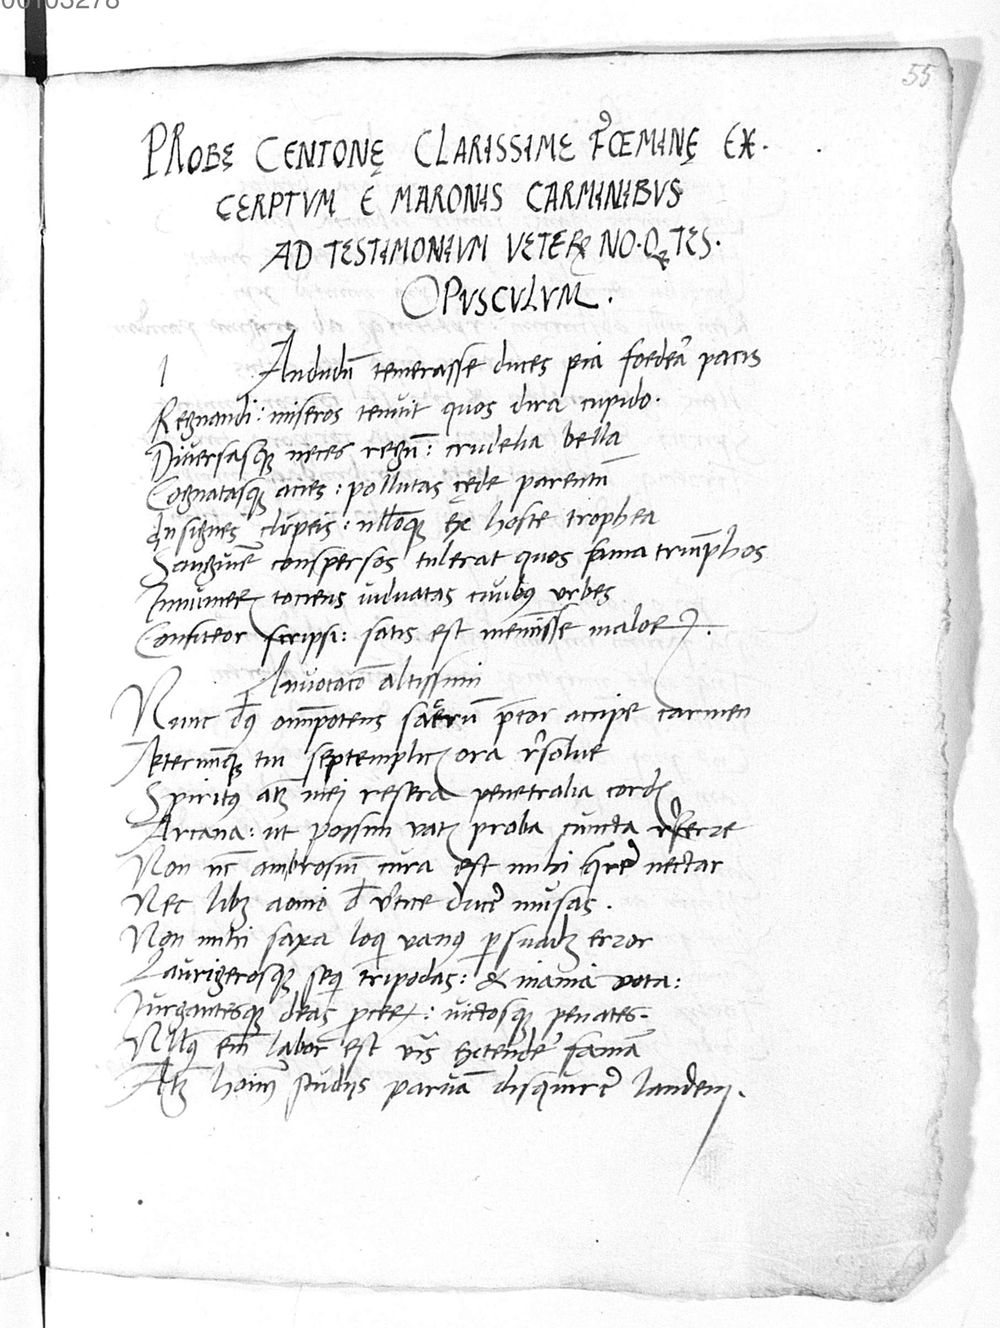 00103278
55
PROBĘ CENTONĘ CLARISSIME FOEMINĘ EX·
CERPTVM E MARONIS CARMINIBVS
AD TESTIMONIVM VETERꝜ NO·Q TES·
OPVSCVLVM.
I Andudũ temerasse duces pia foedera pacis
Regnandi: miseros tenuit quos dira cupido·
Diuersasqꝫ neces regũ: crudelia bella
Cognatasqꝫ acies: pollutas cęde parentũ
Insignes clipeis: nulloqꝫ ex hoste trophea
Sanguinē conspersos tulerat quos fama triũphos
Innumerꝭ tociens uiduatas ciuibꝰ urbes
Confiteor scripsi: satis est meminisse malorꝝ.
Inuocacō altissimi
Nunc dꝰ omnipotens sacrum p̄cor accipe carmen
Aeternũqꝫ tui septemplicꝭ ora r̃solue
Spiritꝰ atqꝫ mei resera penetralia cordꝭ
Arcana: ut possim uatꝭ proba cuncta r̃ferre
Non nc̄ ambrosiũ cura est mihi q̃rere nectar
Nec libꝫ aonio d̄ u̾tice ducere musas.
Non mihi saxa loqui uanꝰ ꝑsuadꝫ error
Laurigerosqꝫ sequi tripodas: & inania uota:
Iurgantesqꝫ deas procerꝝ: uictosqꝫ penates·
Nullꝰ eñ labor est u̾bis extendere famã
Atqꝫ hoim̃ studijs paruã disquirere laudem.